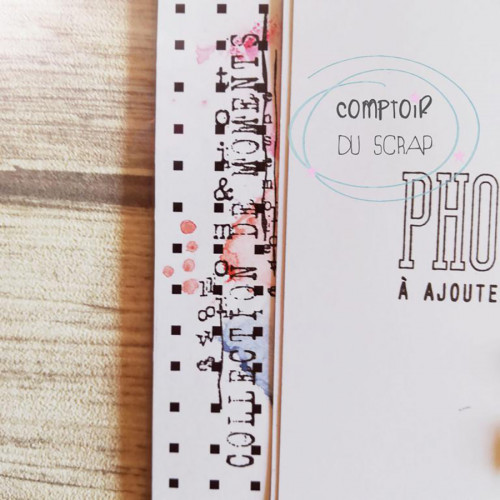 COMPTOIR
DU SCRAP
PHO
À AJOUTE
COLLECTION DE MOMENTS
toi & moi